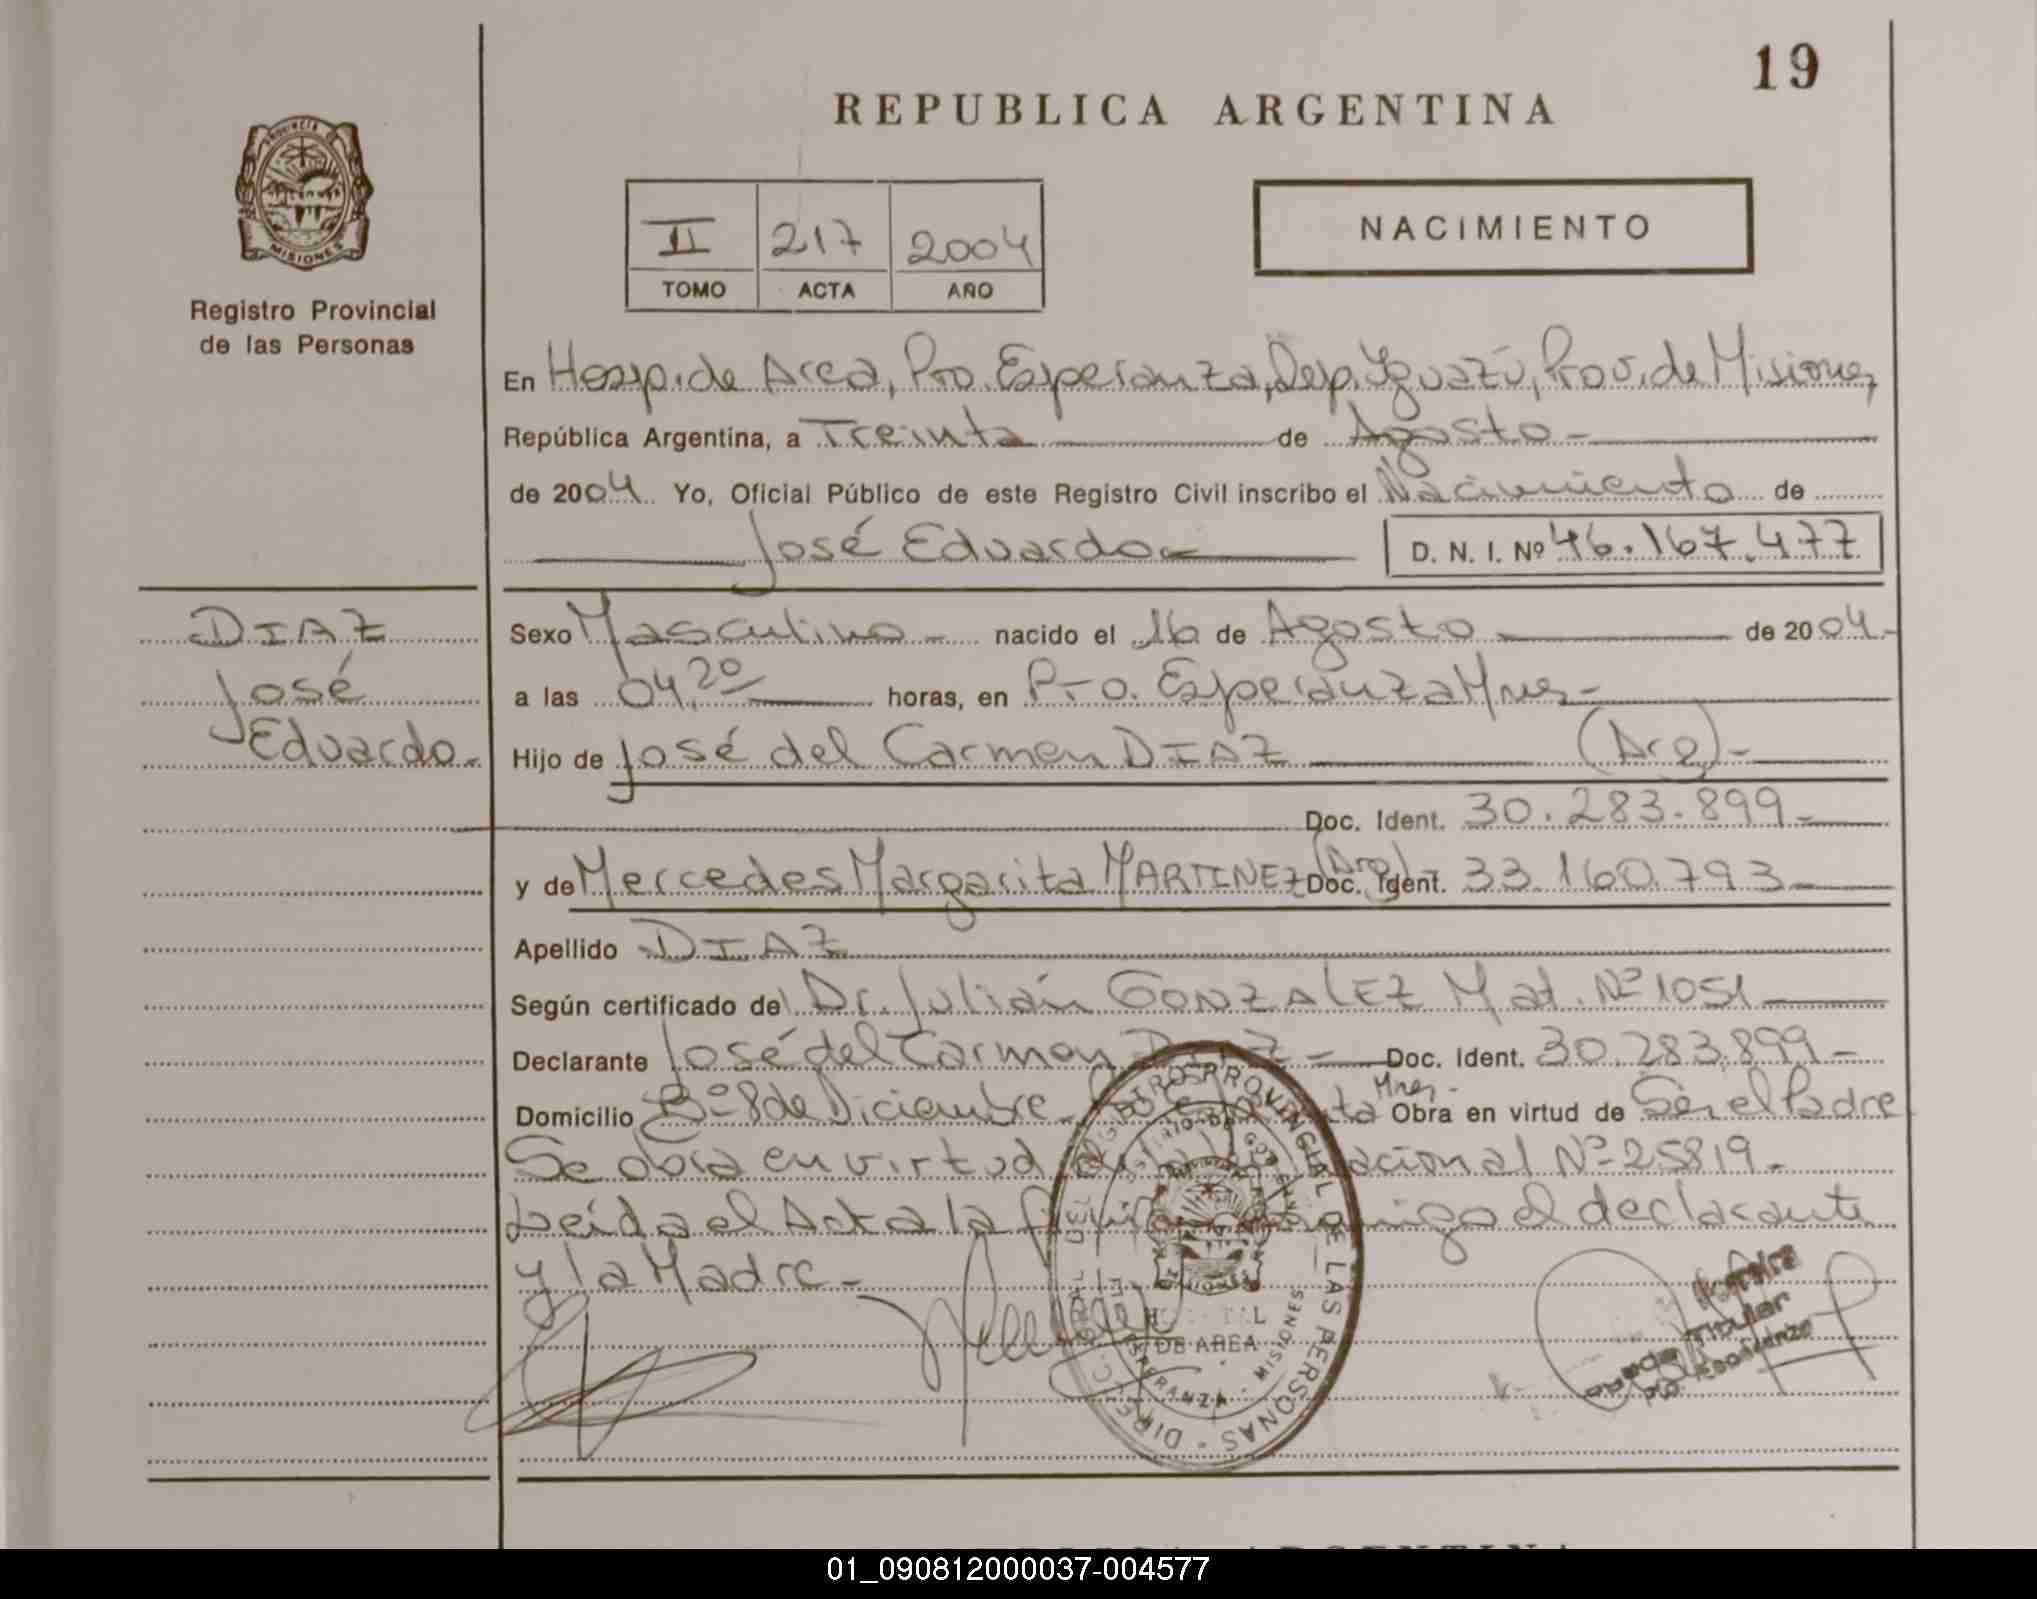 19
REPUBLICA ARGENTINA
PROVINCIA DE MISIONES
Registro Provincial
de las Personas
II 217 2004
TOMO ACTA AÑO
NACIMIENTO
En Hosp. de Area, Pto. Esperanza, Dep. Iguazú, Prov. de Misiones,
República Argentina, a Treinta de Agosto -
de 2004 Yo, Oficial Público de este Registro Civil inscribo el Nacimiento de
José Eduardo D. N. I. Nº 46.167.477
DIAZ
José
Eduardo.-
Sexo Masculino - nacido el 16 de Agosto de 2004.-
a las 04,20 horas, en Pto. Esperanza Mnes -
Hijo de José del Carmen DIAZ (Arg) -
Doc. Ident. 30.283.899 -
y de Mercedes Margarita MARTINEZ (Arg) Doc. Ident. 33.160.793 -
Apellido DIAZ
Según certificado del Dr. Julián GONZALEZ Mat. Nº 1051
Declarante José del Carmen DIAZ - Doc. Ident. 30.283.899 -
Domicilio Bº 8 de Diciembre - Mnes - Obra en virtud de Ser el Padre
Se obra en virtud Nacional Nº 25819 -
Leída el Acta la conmigo el declarante
y la Madre -
PROVINCIAL DE LAS PERSONAS
DE AREA
ESPERANZA - MISIONES
Titular
Pto. Esperanza
REPUBLICA ARGENTINA
01_090812000037-004577